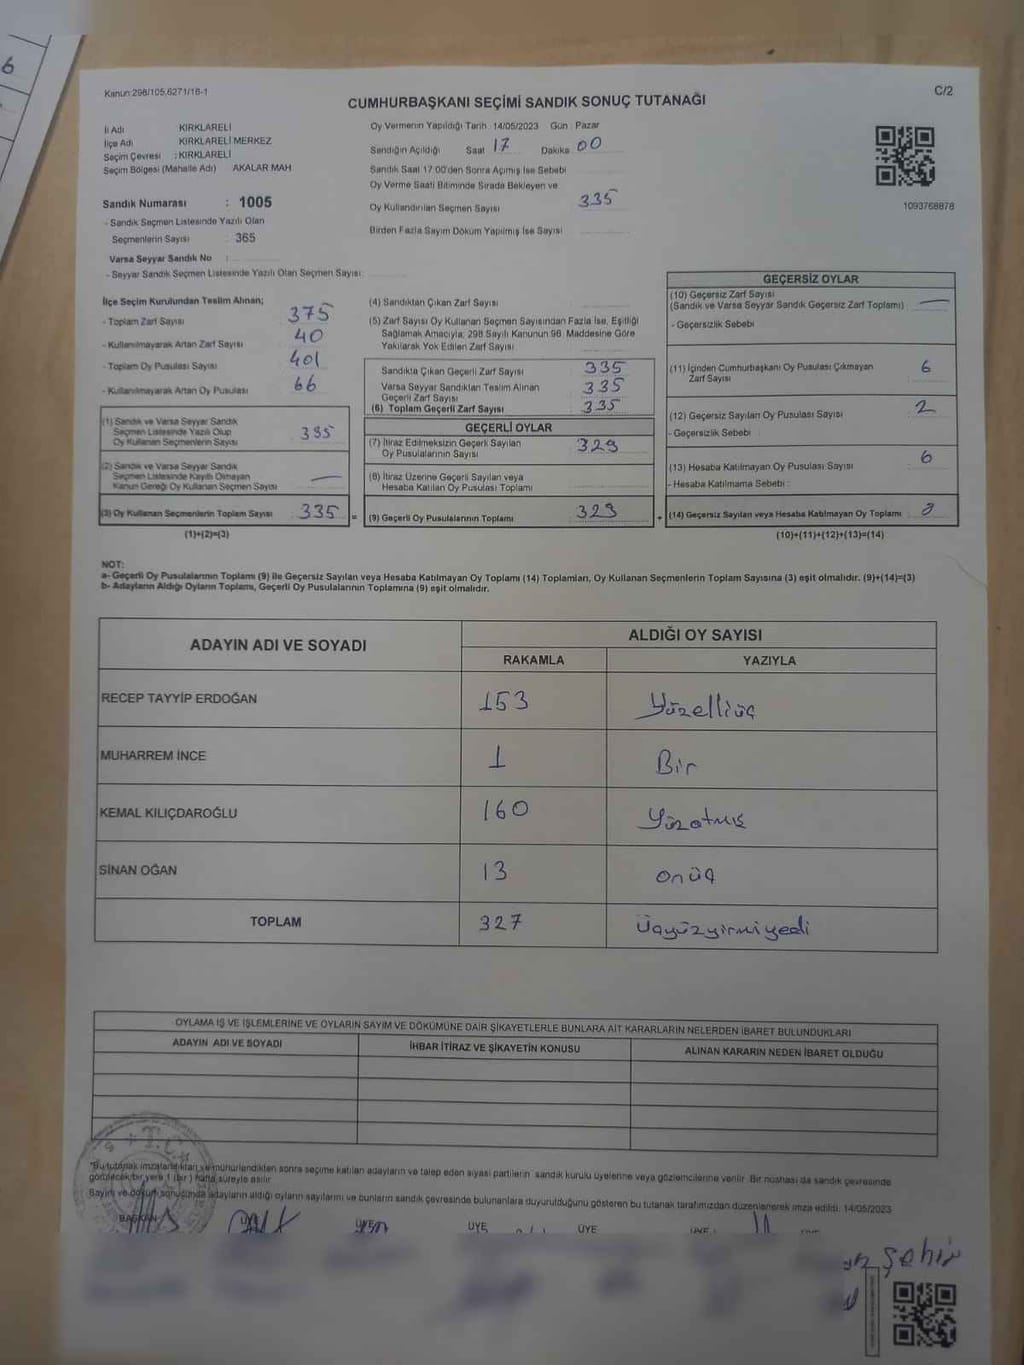 6
Kanun:298/105,6271/16-1
C/2
CUMHURBAŞKANI SEÇİMİ SANDIK SONUÇ TUTANAĞI
İl Adı KIRKLARELİ
İlçe Adı KIRKLARELİ MERKEZ
Seçim Çevresi : KIRKLARELİ
Seçim Bölgesi (Mahalle Adı) AKALAR MAH
Sandık Numarası : 1005
- Sandık Seçmen Listesinde Yazılı Olan
Seçmenlerin Sayısı : 365
Varsa Seyyar Sandık No :
- Seyyar Sandık Seçmen Listesinde Yazılı Olan Seçmen Sayısı:
Oy Vermenin Yapıldığı Tarih : 14/05/2023 Gün : Pazar
Sandığın Açıldığı Saat 17 Dakika 00
Sandık Saat 17:00'den Sonra Açımış İse Sebebi
Oy Verme Saati Bitiminde Sırada Bekleyen ve
Oy Kullandırılan Seçmen Sayısı 335
Birden Fazla Sayım Döküm Yapılmış İse Sayısı
1093768878
İlçe Seçim Kurulundan Teslim Alınan;
- Toplam Zarf Sayısı 375
- Kullanılmayarak Artan Zarf Sayısı 40
- Toplam Oy Pusulası Sayısı 401
- Kullanılmayarak Artan Oy Pusulası 66
(1) Sandık ve Varsa Seyyar Sandık
Seçmen Listesinde Yazılı Olup
Oy Kullanan Seçmenlerin Sayısı 335
(2) Sandık ve Varsa Seyyar Sandık
Seçmen Listesinde Kayıtlı Olmayan
Kanun Gereği Oy Kullanan Seçmen Sayısı —
(3) Oy Kullanan Seçmenlerin Toplam Sayısı 335 =
(1)+(2)=(3)
(4) Sandıktan Çıkan Zarf Sayısı
(5) Zarf Sayısı Oy Kullanan Seçmen Sayısından Fazla İse, Eşitliği
Sağlamak Amacıyla; 298 Sayılı Kanunun 98. Maddesine Göre
Yakılarak Yok Edilen Zarf Sayısı
Sandıkta Çıkan Geçerli Zarf Sayısı 335
Varsa Seyyar Sandıktan Teslim Alınan
Geçerli Zarf Sayısı 335
(6) Toplam Geçerli Zarf Sayısı 335
GEÇERLİ OYLAR
(7) İtiraz Edilmeksizin Geçerli Sayılan
Oy Pusulalarının Sayısı 329
(8) İtiraz Üzerine Geçerli Sayılan veya
Hesaba Katılan Oy Pusulası Toplamı
(9) Geçerli Oy Pusulalarının Toplamı 329 +
GEÇERSİZ OYLAR
(10) Geçersiz Zarf Sayısı
(Sandık ve Varsa Seyyar Sandık Geçersiz Zarf Toplamı) —
- Geçersizlik Sebebi
(11) İçinden Cumhurbaşkanı Oy Pusulası Çıkmayan
Zarf Sayısı 6
(12) Geçersiz Sayılan Oy Pusulası Sayısı 2
- Geçersizlik Sebebi
(13) Hesaba Katılmayan Oy Pusulası Sayısı 6
- Hesaba Katılmama Sebebi :
(14) Geçersiz Sayılan veya Hesaba Katılmayan Oy Toplamı
(10)+(11)+(12)+(13)=(14)
NOT:
a- Geçerli Oy Pusulalarının Toplamı (9) ile Geçersiz Sayılan veya Hesaba Katılmayan Oy Toplamı (14) Toplamları, Oy Kullanan Seçmenlerin Toplam Sayısına (3) eşit olmalıdır. (9)+(14)=(3)
b- Adayların Aldığı Oyların Toplamı, Geçerli Oy Pusulalarının Toplamına (9) eşit olmalıdır.
ADAYIN ADI VE SOYADI ALDIĞI OY SAYISI
RAKAMLA YAZIYLA
RECEP TAYYİP ERDOĞAN 153 Yüzelliüç
MUHARREM İNCE 1 Bir
KEMAL KILIÇDAROĞLU 160 Yüzatmış
SİNAN OĞAN 13 onüç
TOPLAM 327 Üçyüzyirmiyedi
OYLAMA İŞ VE İŞLEMLERİNE VE OYLARIN SAYIM VE DÖKÜMÜNE DAİR ŞİKAYETLERLE BUNLARA AİT KARARLARIN NELERDEN İBARET BULUNDUKLARI
ADAYIN ADI VE SOYADI İHBAR İTİRAZ VE ŞİKAYETİN KONUSU ALINAN KARARIN NEDEN İBARET OLDUĞU
T.C.
*Bu tutanak imzalandıktan ve mühürlendikten sonra seçime katılan adayların ve talep eden siyasi partilerin sandık kurulu üyelerine veya gözlemcilerine verilir. Bir nüshası da sandık çevresinde
görülecek bir yere 1 (bir) hafta süreyle asılır
Sayım ve döküm sonucunda adayların aldığı oyların sayılarını ve bunların sandık çevresinde bulunanlara duyurulduğunu gösteren bu tutanak tarafımızdan düzenlenerek imza edildi. 14/05/2023
BAŞKAN ÜYE ÜYE ÜYE ÜYE ÜYE
Şehir